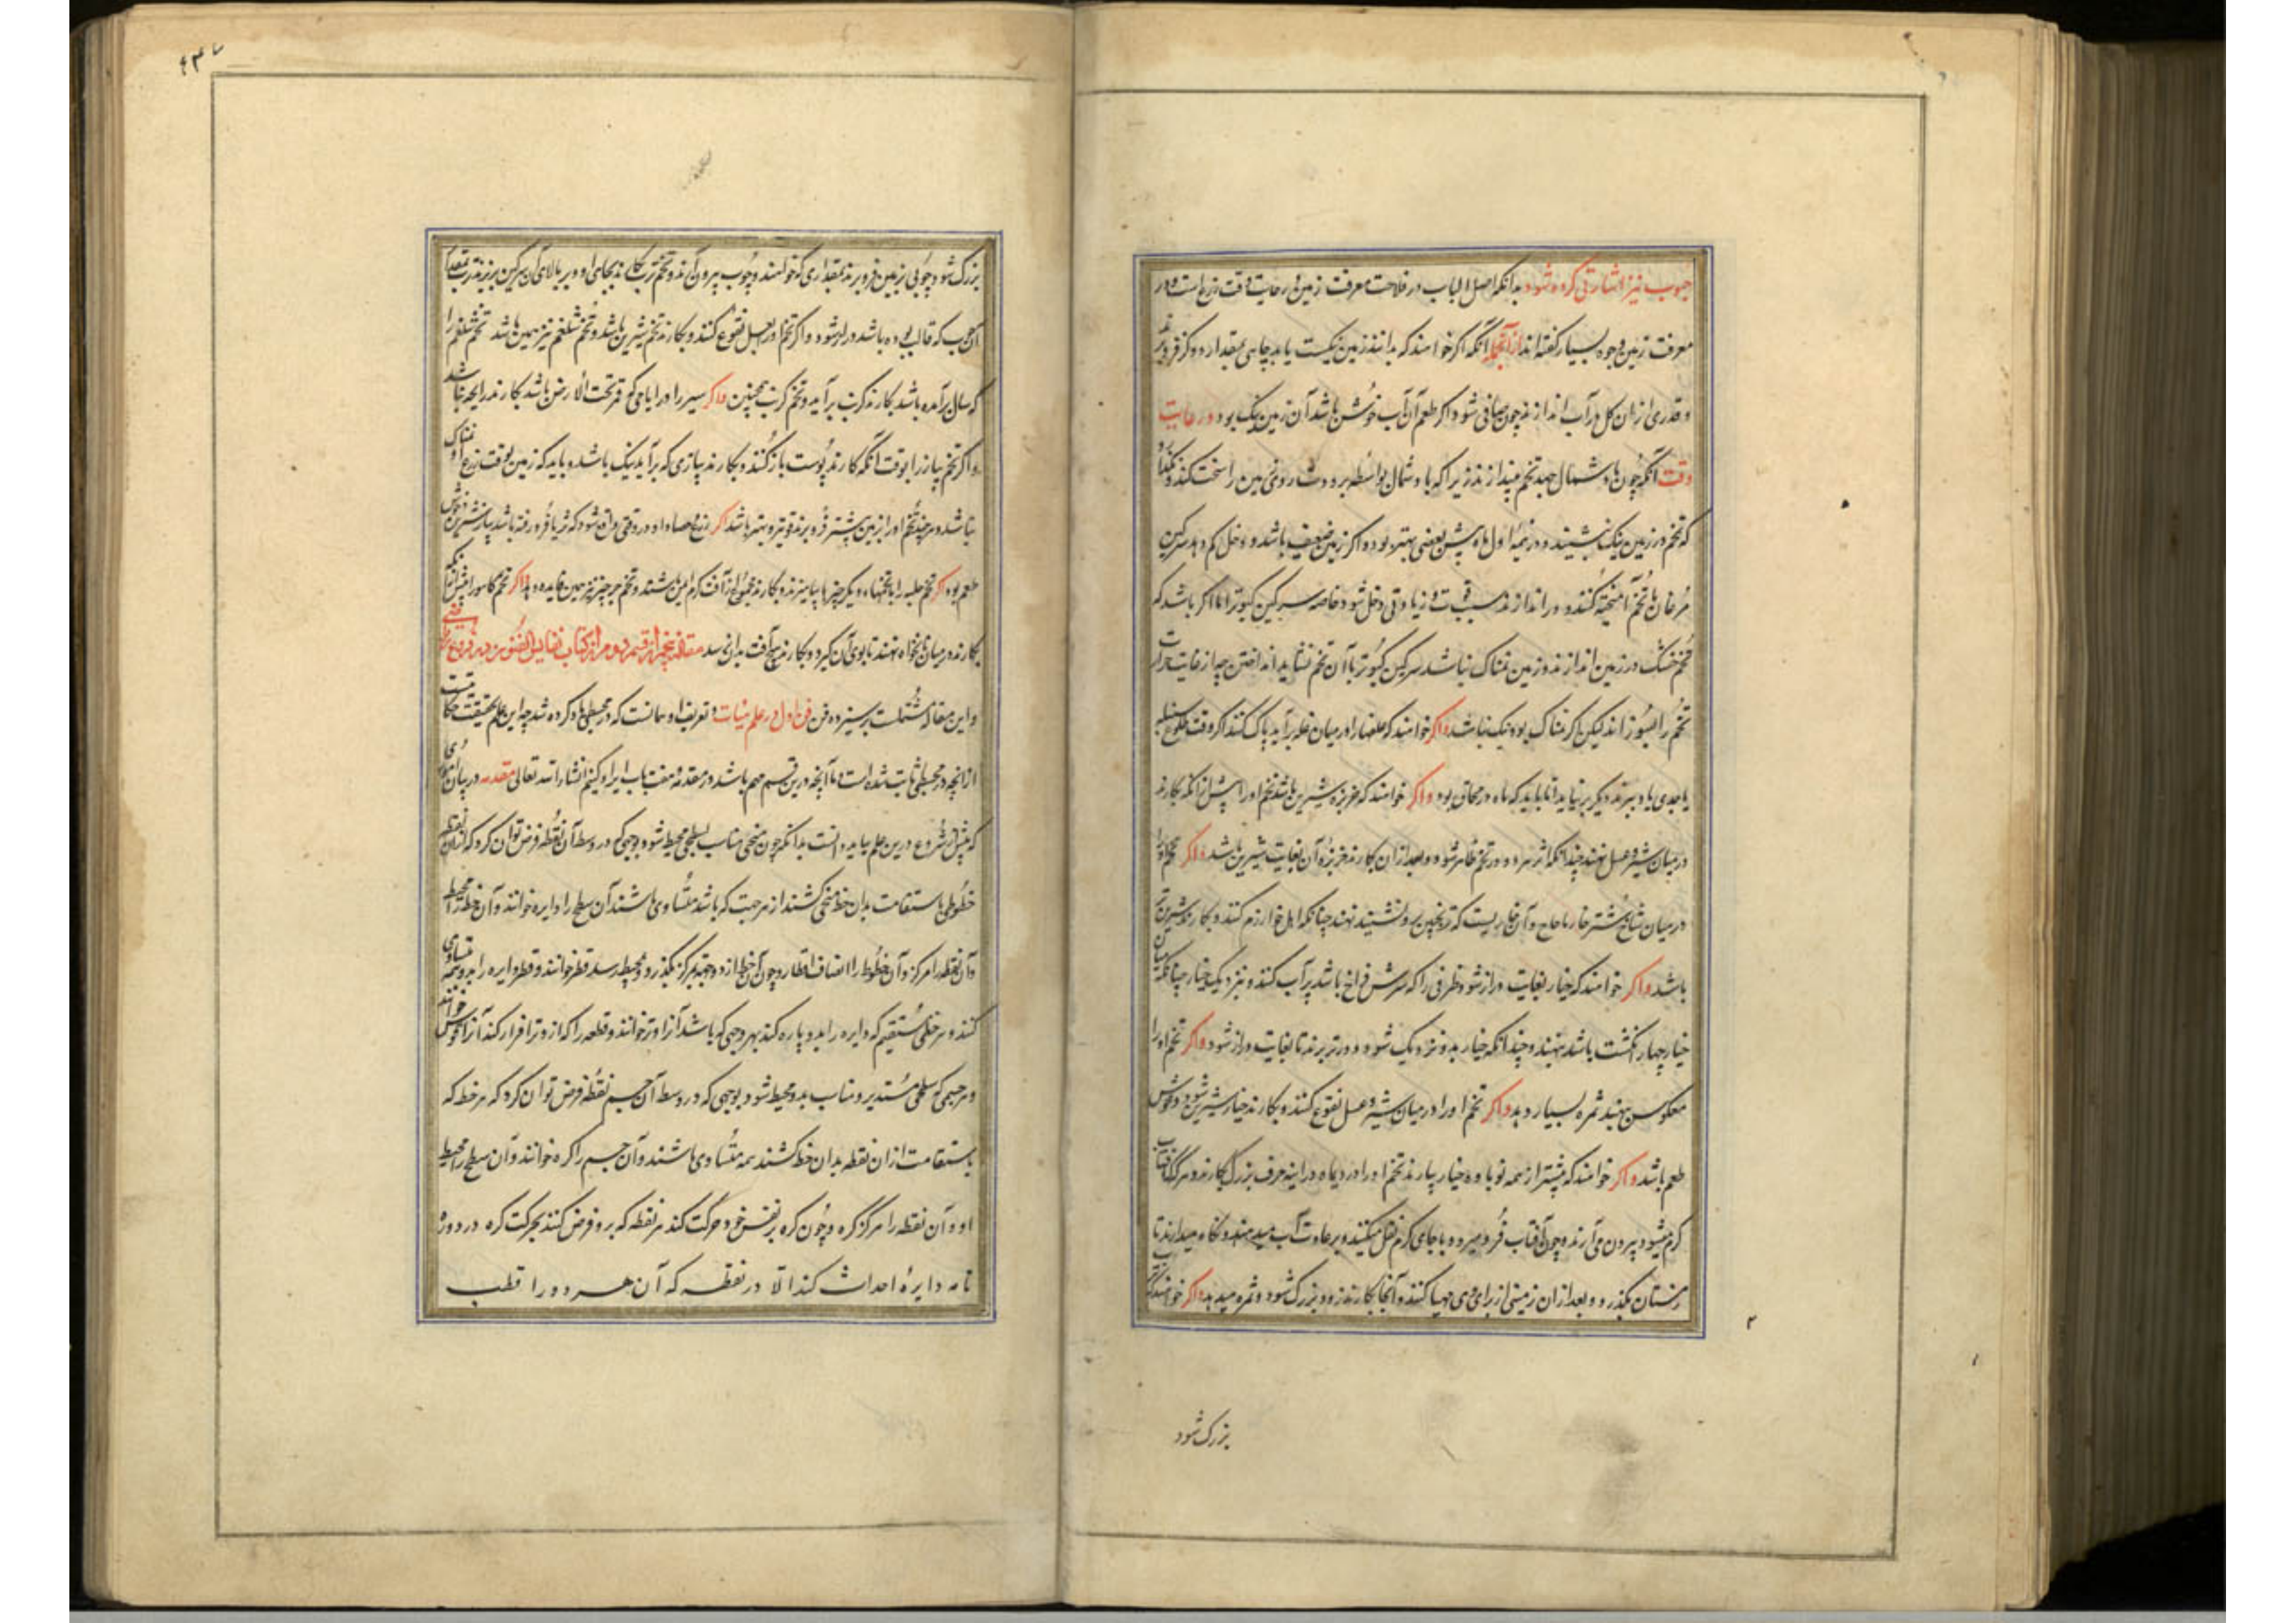 حبوب نیز اشارتی کرده شود بدانکه اصل الباب در فلاحت معرفت زمین و رعایت وقت زرع است و در
معرفت زمین وجوه بسیار کفته اند از آنجمله آنکه اکر خواهند که بدانند زمین نیکست یا بد چاهی بمقدار دو کز فرو برند
و قدری از ان کل در آب اندازند چون صافی شود اکر طعم آن آب خوش باشد آن زمین نیک بود و در رعایت
وقت آنکه چون باد شمال جهد تخم نیندازند زیرا که باد شمال بواسطه برودت روی زمین را سخت کند و نکذارد
که تخم در زمین نیک نشیند و در نیمه اول ماه پیش بعضی بهتر بود و اکر زمین ضعیف باشد و دخل کم دهد سرکین
مرغان با تخم آمیخته کنند و در اندازند سبب قوت و زیادتی دخل شود خاصه سرکین کبوتر اما اکر باشد که
تخم خشک در زمین اندازند و زمین نمناک نباشد سرکین کبوتر با آن تخم نشاید انداختن چه از غایت حرارت
تخم را بسوزاند لیکن اکر نمناک بود نیک باشد و اکر خواهند که علفها را در میان غله برآید پاک کنند اکر وقت طلوع سنبله
یا جدی یا دبر ببرند دیکر برنیاید اما باید که ماه در محاق بود و اکر خواهند که خربزه شیرین باشد تخم او را پیش از انکه بکارند
در میان شیر و عسل نهند چندانکه اثر هر دو در تخم ظاهر شود و بعد از ان بکارند خربزه آن بغایت شیرین باشد و اکر تخم او را
در میان شاخ شتر خار یا حاج و آن خاریست که ترنجبین برو نشیند نهند چنانکه اهل خوارزم کنند و بکارند شیرین تر
باشد و اکر خواهند که خیار بغایت دراز شود ظرفی را که سرش فراخ باشد پر آب کنند و نزدیک خیار چنانکه میان
خیار چهار انکشت باشد بنهند و چندانکه خیار بدو نزدیک شود دورتر برند تا بغایت دراز شود و اکر تخم او را
معکوس بنهند ثمره بسیار دهد و اکر تخم او را در میان شیر و عسل نقوع کنند و بکارند خیار شیرین شود و خوش
طعم باشد و اکر خواهند که پیشتر از همه نوباوه خیار بیارند تخم او را در دیماه در اینه خزف بزرک بکارند و هرکه آفتاب
کرم میشود بیرون می آرند و چون آفتاب فرو میرود با جای کرم نقل میکنند و بر عادت آب میدهند و نکاه میدارند تا
زمستان بکذرد و بعد از ان زمینی از برای وی مهیا کنند و آنجا بکارند زود بزرک شود و ثمره میدهد و اکر خواهند که ترب
بزرک شود
۴۳۷
بزرک شود چوبی بزمین فرو برند بمقداری که خواهند و چوب بیرون آرند و تخم ترب بکارند بجای او و بر بالای آن سرکین بریزند ترب بمقدار
آن چوب که قالب بوده باشد دراز شود و اکر تخم او در عسل نقوع کنند و بکارند تخم شیرین باشد و تخم شلغم نیز همین باشد تخم شلغم را
که سال برآمده باشد بکارند کرنب برآید و تخم کرنب همچنین و اکر سیر را در ایامی که قمر تحت الارض باشد بکارند رایحه نباشد
و اکر تخم پیاز را بوقت آنکه بکارند پوست باز کنند و بکارند پیازی که برآید نیک باشد و باید که زمین بوقت زرع او نمناک
نباشد و هر چند تخم او را بزمین پیشتر فرو برند قویتر و بهتر باشد اکر زرع حصاد او در وقتی واقع شود که ثریا فرو رفته باشد پیاز شیرین و خوش
طعم بود اکر تخم حلبه را با تخمهاء دیکر چیزها بیامیزند و بکارند جمله از آفت کرم ایمن باشند و تخم جرجیر نیز همین فایده دهد اکر تخم کاسو را پیش از آنکه
بکارند در میان نانخواه نهند تا بوی آن کیرد و بکارند هیچ آفت بدان نرسد مقاله پنجم از قسم دوم از کتاب نفایس الفنون در فروع ریاضی
و این مقاله مشتملست بر سیزده فن فن اول در علم هیات و تعریف او همانست که در مجسطی یاد کرده شد چه این علم بحقیقت حکایتست
از انچه در مجسطی ثابت شده است و ما آنچه درین قسم مهم باشد در مقدمه و هفت باب ایراد کنیم انشاء الله تعالی مقدمه در بیان اموری
که پیش از شروع درین علم بباید دانست بدانکه چون منحنی متناسب بسطحی محیط شود بوجهی که در وسط آن نقطه فرض توان کرد که از ان نقطه
خطوطی باستقامت بدان خط منحنی کشند از هر جهت که باشد متساوی باشند آن سطح را دایره خوانند و آن خط را محیط
و آن نقطه را مرکز و آن خطوط را انصاف اقطار و چون آن خط از دو جهت بمرکز بکذرد و بمحیط رسد قطر خوانند و قطر دایره را بدو نیمه متساوی
کند و هر خطی مستقیم که دایره را بدو پاره کند بهر وجهی که باشد آنرا وتر خوانند و قطعه را که از وتر افراز کند آنرا قوس خوانند
و هر جسمی که سطحی مستدیر متناسب بدو محیط شود بوجهی که در وسط آن جسم نقطه فرض توان کرد که هر خط که
باستقامت از ان نقطه بدان خط کشند همه متساوی باشند و آن جسم را کره خوانند و آن سطح را محیط
او و آن نقطه را مرکز کره و چون کره بنفس خود حرکت کند هر نقطه که برو فرض کنند بحرکت کره در دوره
تامه دایرهٔ احداث کند الا در نقطه که آن هر دو را قطب